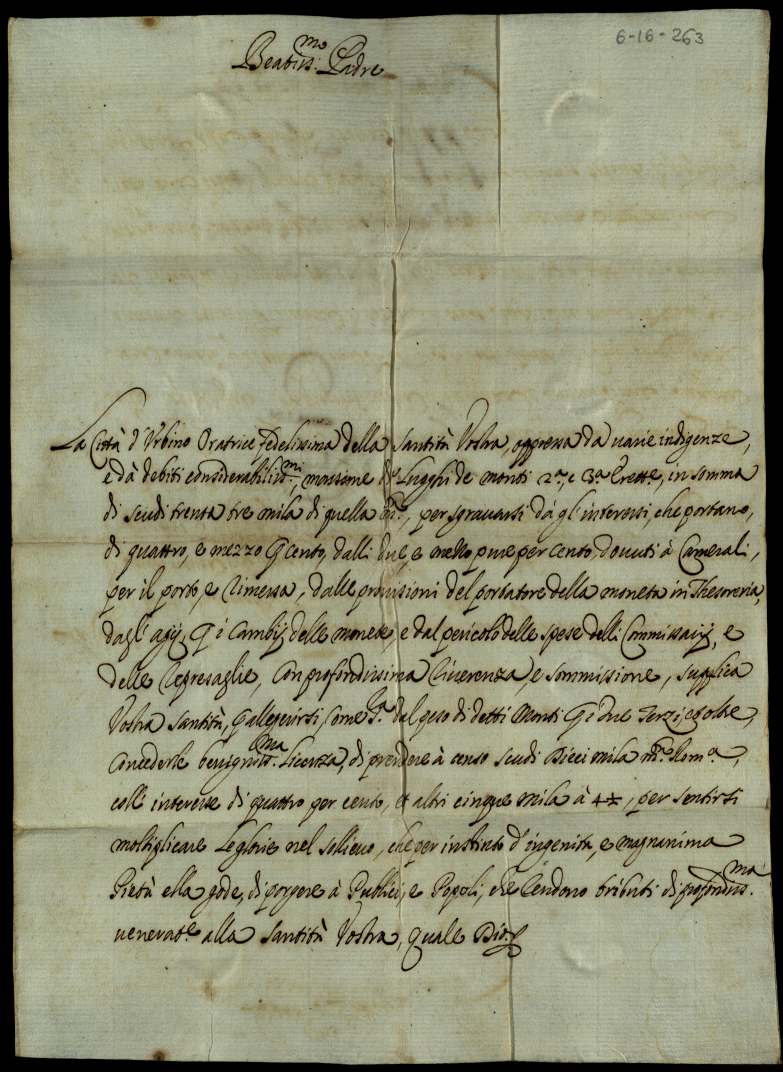 6-16-263
Beatiss:mo Padre
La Città d'Vrbino Oratrice fedelissima della Santità Vostra, oppressa da uarie indigenze,
e da debiti considerabiliss:mi, massime de Luoghi de monti 2.a, e 3.a Erette, in somma
di scudi trenta tre mila di quella m.ta, per sgrauarsi dà gl'interessi, che portano,
di quattro, e mezzo p cento, dalli due, e mezzo pure per cento douuti à Camerali,
per il porto, e rimessa, dalle prouisioni del portatore della moneta in Thesoreria,
dagl'agij p i Cambij delle monete, e dal pericolo delle spese delli Commissarij, e
delle represaglie, con profondissima riuerenza, e sommissione, supplica
Vostra Santità, p allegerirsi, come s.a dal peso di detti Monti p i due terzi, et oltre,
concederle benigniss:ma licenza, di prendere à censo scudi Dieci mila m.ta Rom.a,
colli interesse di quattro per cento, et altri cinque mila à 4½, per sentirsi
moltiplicare le glorie nel sollieuo, che per instinto d'ingenita, e magnanima
Pietà ella gode, di porgere à Publici, e Popoli, che rendono tributi di profondiss:ma
venerat.e alla Santità Vostra, quale Dio